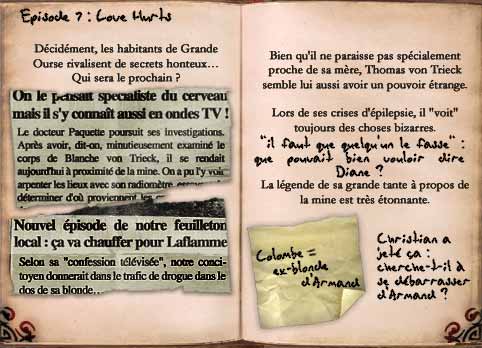 Episode 7 : Love Hurts
Décidément, les habitants de Grande
Ourse rivalisent de secrets honteux...
Qui sera le prochain ?
On le pensait specialiste du cerveau
mais il s'y connaît aussi en ondes TV !
Le docteur Paquette poursuit ses investigations.
Après avoir, dit-on, minutieusement examiné le
corps de Blanche von Trieck, il se rendait
aujourd'hui à proximité de la mine. On a pu l'y voir
arpenter les lieux avec son radiomètre
déterminer d'où proviennent les
Nouvel épisode de notre feuilleton
local : ça va chauffer pour Laflamme
Selon sa "confession télévisée", notre conci-
toyen donnerait dans le trafic de drogue dans le
dos de sa blonde...
Bien qu'il ne paraisse pas spécialement
proche de sa mère, Thomas von Trieck
semble lui aussi avoir un pouvoir étrange.
Lors de ses crises d'épilepsie, il "voit"
toujours des choses bizarres.
"il faut que quelqu'un le fasse" :
que pouvait bien vouloir dire
Diane ?
La légende de sa grande tante à propos de
la mine est très étonnante.
Colombe =
ex-blonde
d'Armand
Christian a
jeté ça :
cherche-t-il à
se débarrasser
d'Armand ?